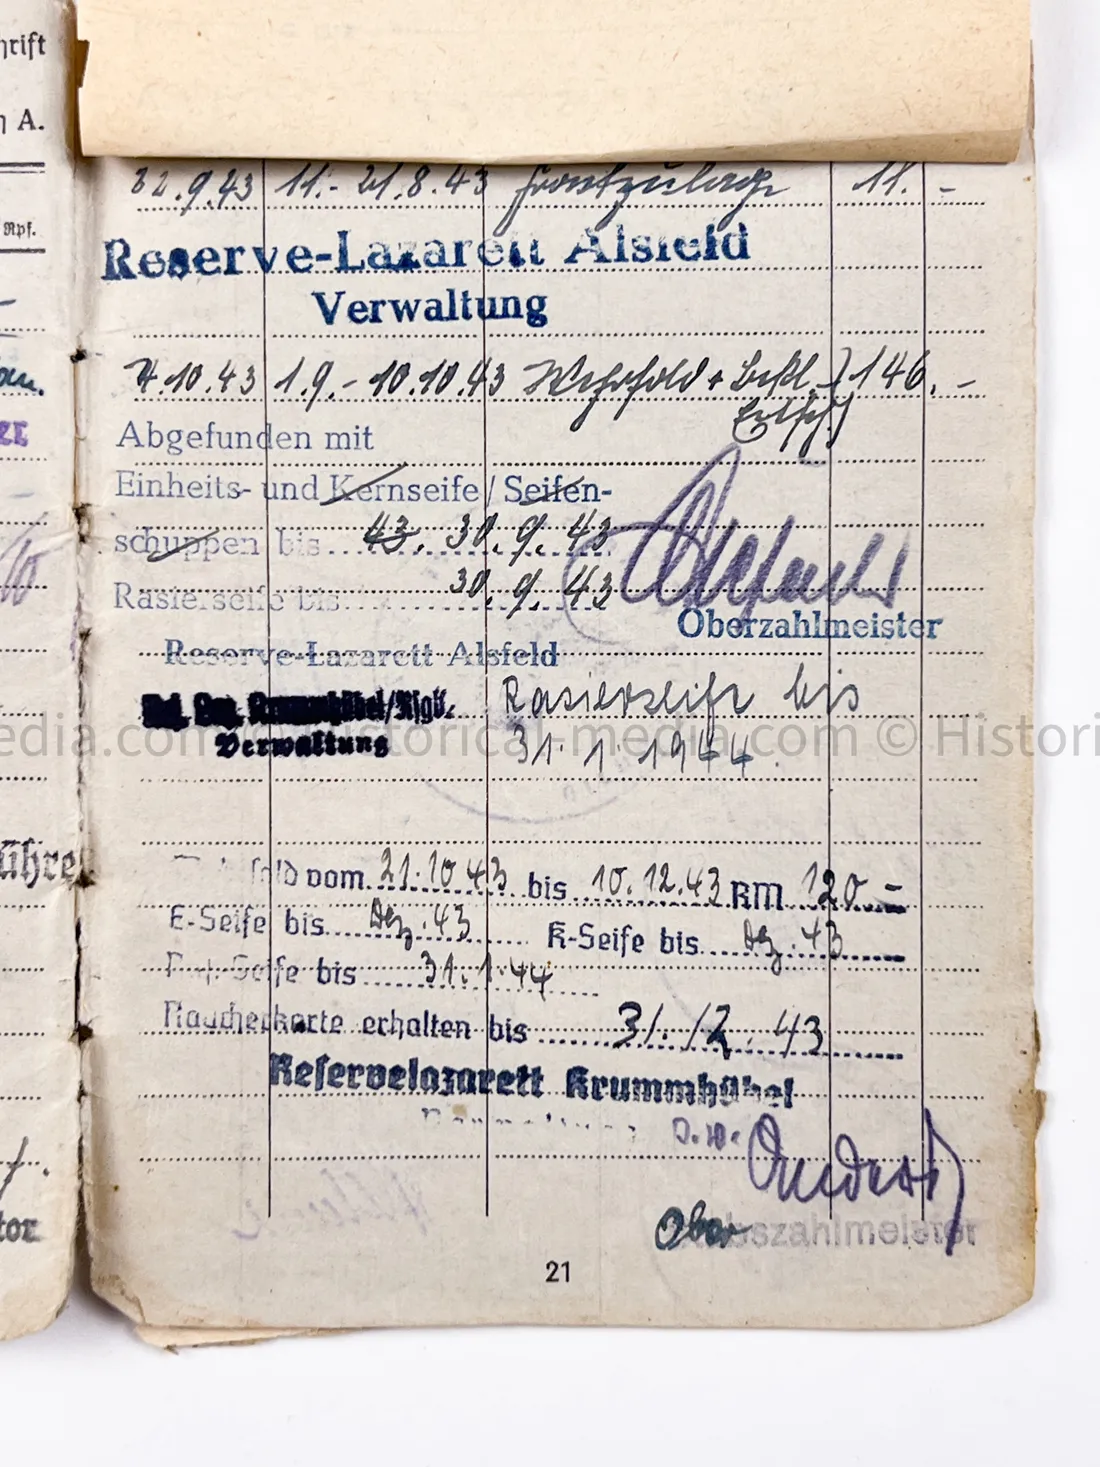 hrift
A.
Rpf.
22.9.43 11.- 21.8.43 Frontzulage 11. -
Reserve-Lazarett Alsfeld
Verwaltung
4.10.43 1.9.- 10.10.43 Wehrsold + 146.-
Abgefunden mit
Einheits- und Kernseife / Seifen-
schuppen bis 43. 30.9.43
Rasierseife bis 30.9.43
Oberzahlmeister
Reserve-Lazarett Alsfeld
Krummhübel/Rsgb. Rasierseife bis
Verwaltung 31.1.1944.
edia.com historical-media.com © Histori
ühre
sold vom 21.10.43 bis 10.12.43 RM 120.-
E-Seife bis Dez. 43 K-Seife bis Dez. 43
Seife bis 31.1.44
Raucherkarte erhalten bis 31.12.43
Reservelazarett Krummhübel
Ober stabszahlmeister
tor
21